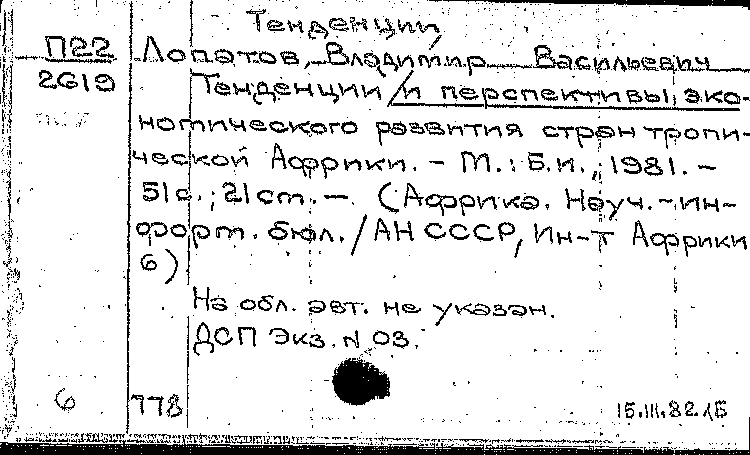 Тенденции
П22 Лопатов, Владимир Васильевич
2619 Тенденции и перспективы эко-
номического развития стран тропи-
ческой Африки. – М.: Б.и., 1981. –
51с.; 21см. – (Африка. Науч.-ин-
форм. бюл. / АН СССР, Ин-т Африки
6)
На обл. авт. не указан.
ДСП Экз. N 03.
6 778 15.III.82.